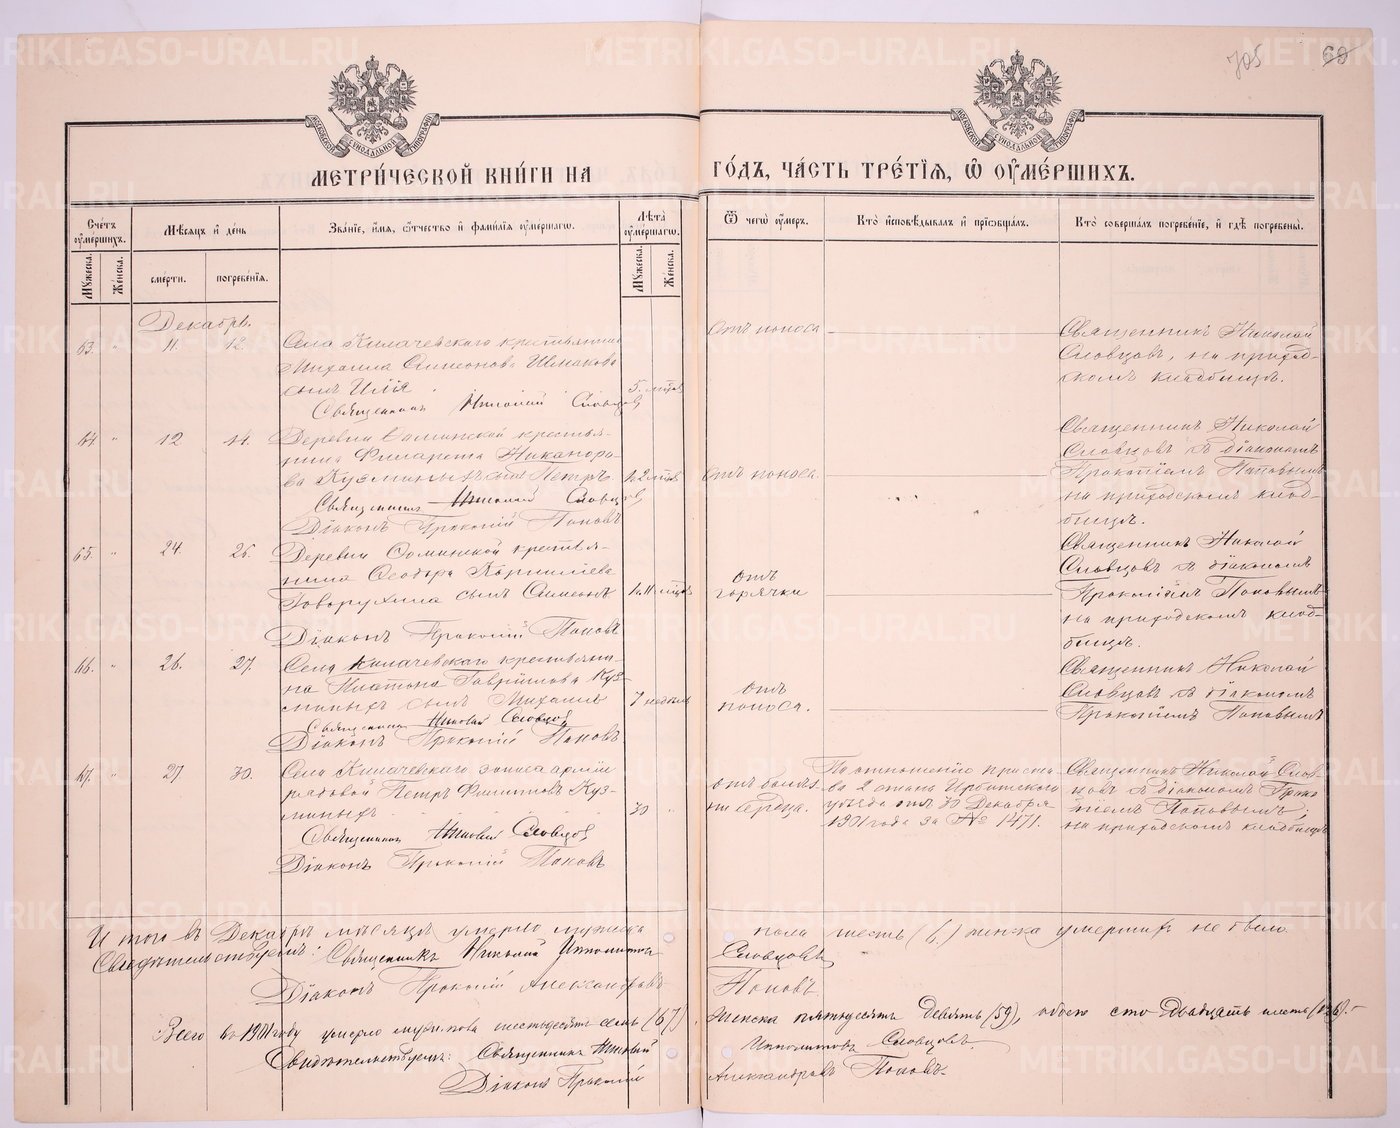 705 60
МОСКОВСКОЙ СѴНОДАЛЬНОЙ ТИПОГРАФІИ
МОСКОВСКОЙ СѴНОДАЛЬНОЙ ТИПОГРАФІИ
МЕТРИ́ЧЕСКОЙ КНИ́ГИ НА ГО́ДЪ, ЧА́СТЬ ТРЕ́ТІѦ, Ѡ ОУ҆МЕ́РШИХЪ.
Сче́тъ оу҆ме́ршихъ.
Мѣ́сѧцъ и҆ де́нь
Зва́ніе, и҆́мѧ, ѻ҆́тчество и҆ фами́ліѧ оу҆ме́ршагѡ.
Лѣ́та оу҆ме́ршагѡ.
Ѿ чегѡ̀ оу҆́меръ.
Кто̀ и҆сповѣ́дывалъ и҆ прїѡбща́лъ.
Кто̀ соверша́лъ погребе́ніе, и҆ гдѣ̀ погребены̀.
Мꙋ́жеска. Же́нска.
сме́рти. погребе́ніѧ.
Мꙋ́жеска. Же́нска.
Декабрь.
63. " 11. 12. Села Килачевскаго крестьянина
Михаила Симеонова Шмакова
сынъ Илія 5. мѣсяц.
Священникъ Николай Словцовъ
отъ поноса
Священникъ Николай
Словцовъ, на приход-
скомъ кладбищѣ.
64. " 12 14. Деревни Фоминской крестья-
нина Филарета Никаноро-
ва Кузминыхъ сынъ Петръ
Священникъ Николай Словцовъ
Діаконъ Прокопій Поповъ
отъ поноса.
Священникъ Николай
Словцовъ съ діакономъ
Прокопіемъ Поповымъ
на приходскомъ клад-
бищѣ.
65. " 24. 26. Деревни Фоминской крестья-
нина Ѳеодора Корниліева
Говорухина сынъ Симеонъ
Діаконъ Прокопій Поповъ
отъ
горячки
Священникъ Николай
Словцовъ съ діакономъ
Прокопіемъ Поповымъ
на приходскомъ клад-
бищѣ.
66. " 26. 27. Села Килачевскаго крестьяни-
на Платона Гавріилова Куз-
миныхъ сынъ Михаилъ 7 недѣль
Священникъ Николай Словцовъ
Діаконъ Прокопій Поповъ
отъ
поноса.
Священникъ Николай
Словцовъ съ діакономъ
Прокопіемъ Поповымъ
67. " 27 30. Села Килачевскаго запаса арміи
рядовой Петръ Филиповъ Куз-
миныхъ 30 "
Священникъ Николай Словцовъ
Діаконъ Прокопій Поповъ
отъ болѣз-
ни сердца.
По отношенію приста-
ва 2 стана Ирбитскаго
уѣзда отъ 30 Декабря
1901 года за № 1471.
Священникъ Николай Слов-
цовъ съ діакономъ Проко-
піемъ Поповымъ,
на приходскомъ кладбищѣ
Итого въ Декабрѣ мѣсяцѣ умерло мужска пола шесть (6.) женска умершихъ не было
Свидѣтельствуемъ: Священникъ Николай Ипполитовъ Словцовъ
Діаконъ Прокопій Александровъ Поповъ.
Всего въ 1901 году умерло муж. пола шестьдесятъ семь (67) женска пятьдесятъ девять (59), обоего сто двадцать шесть (126).
Свидѣтельствуемъ: Священникъ Николай Ипполитовъ Словцовъ.
Діаконъ Прокопій Александровъ Поповъ.
METRIKI.GASO-URAL.RU